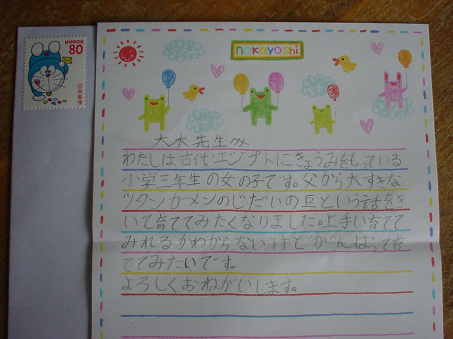 NIPPON
80
nakayoshi
大木先生へ
わたしは古代エジプトにきょうみをもっている
小学三年生の女の子です。父から大すきな
ツタンカーメンのじだいの豆という話をき
いて育ててみたくなりました。上手く育てて
みれるかわからないけどがんばって育
ててみたいです。
よろしくおねがいします。